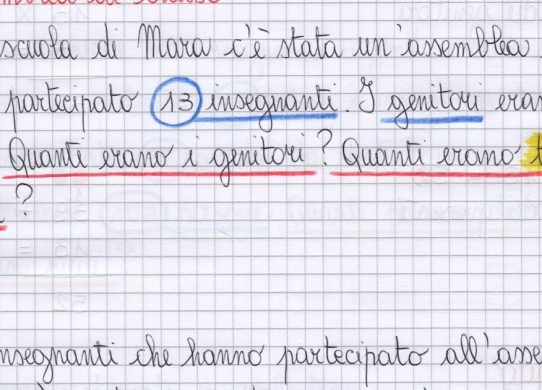 scuola di Mara c'è stata un'assemblea
partecipato 13 insegnanti. I genitori eran
Quanti erano i genitori? Quanti erano t
?
insegnanti che hanno partecipato all'asse